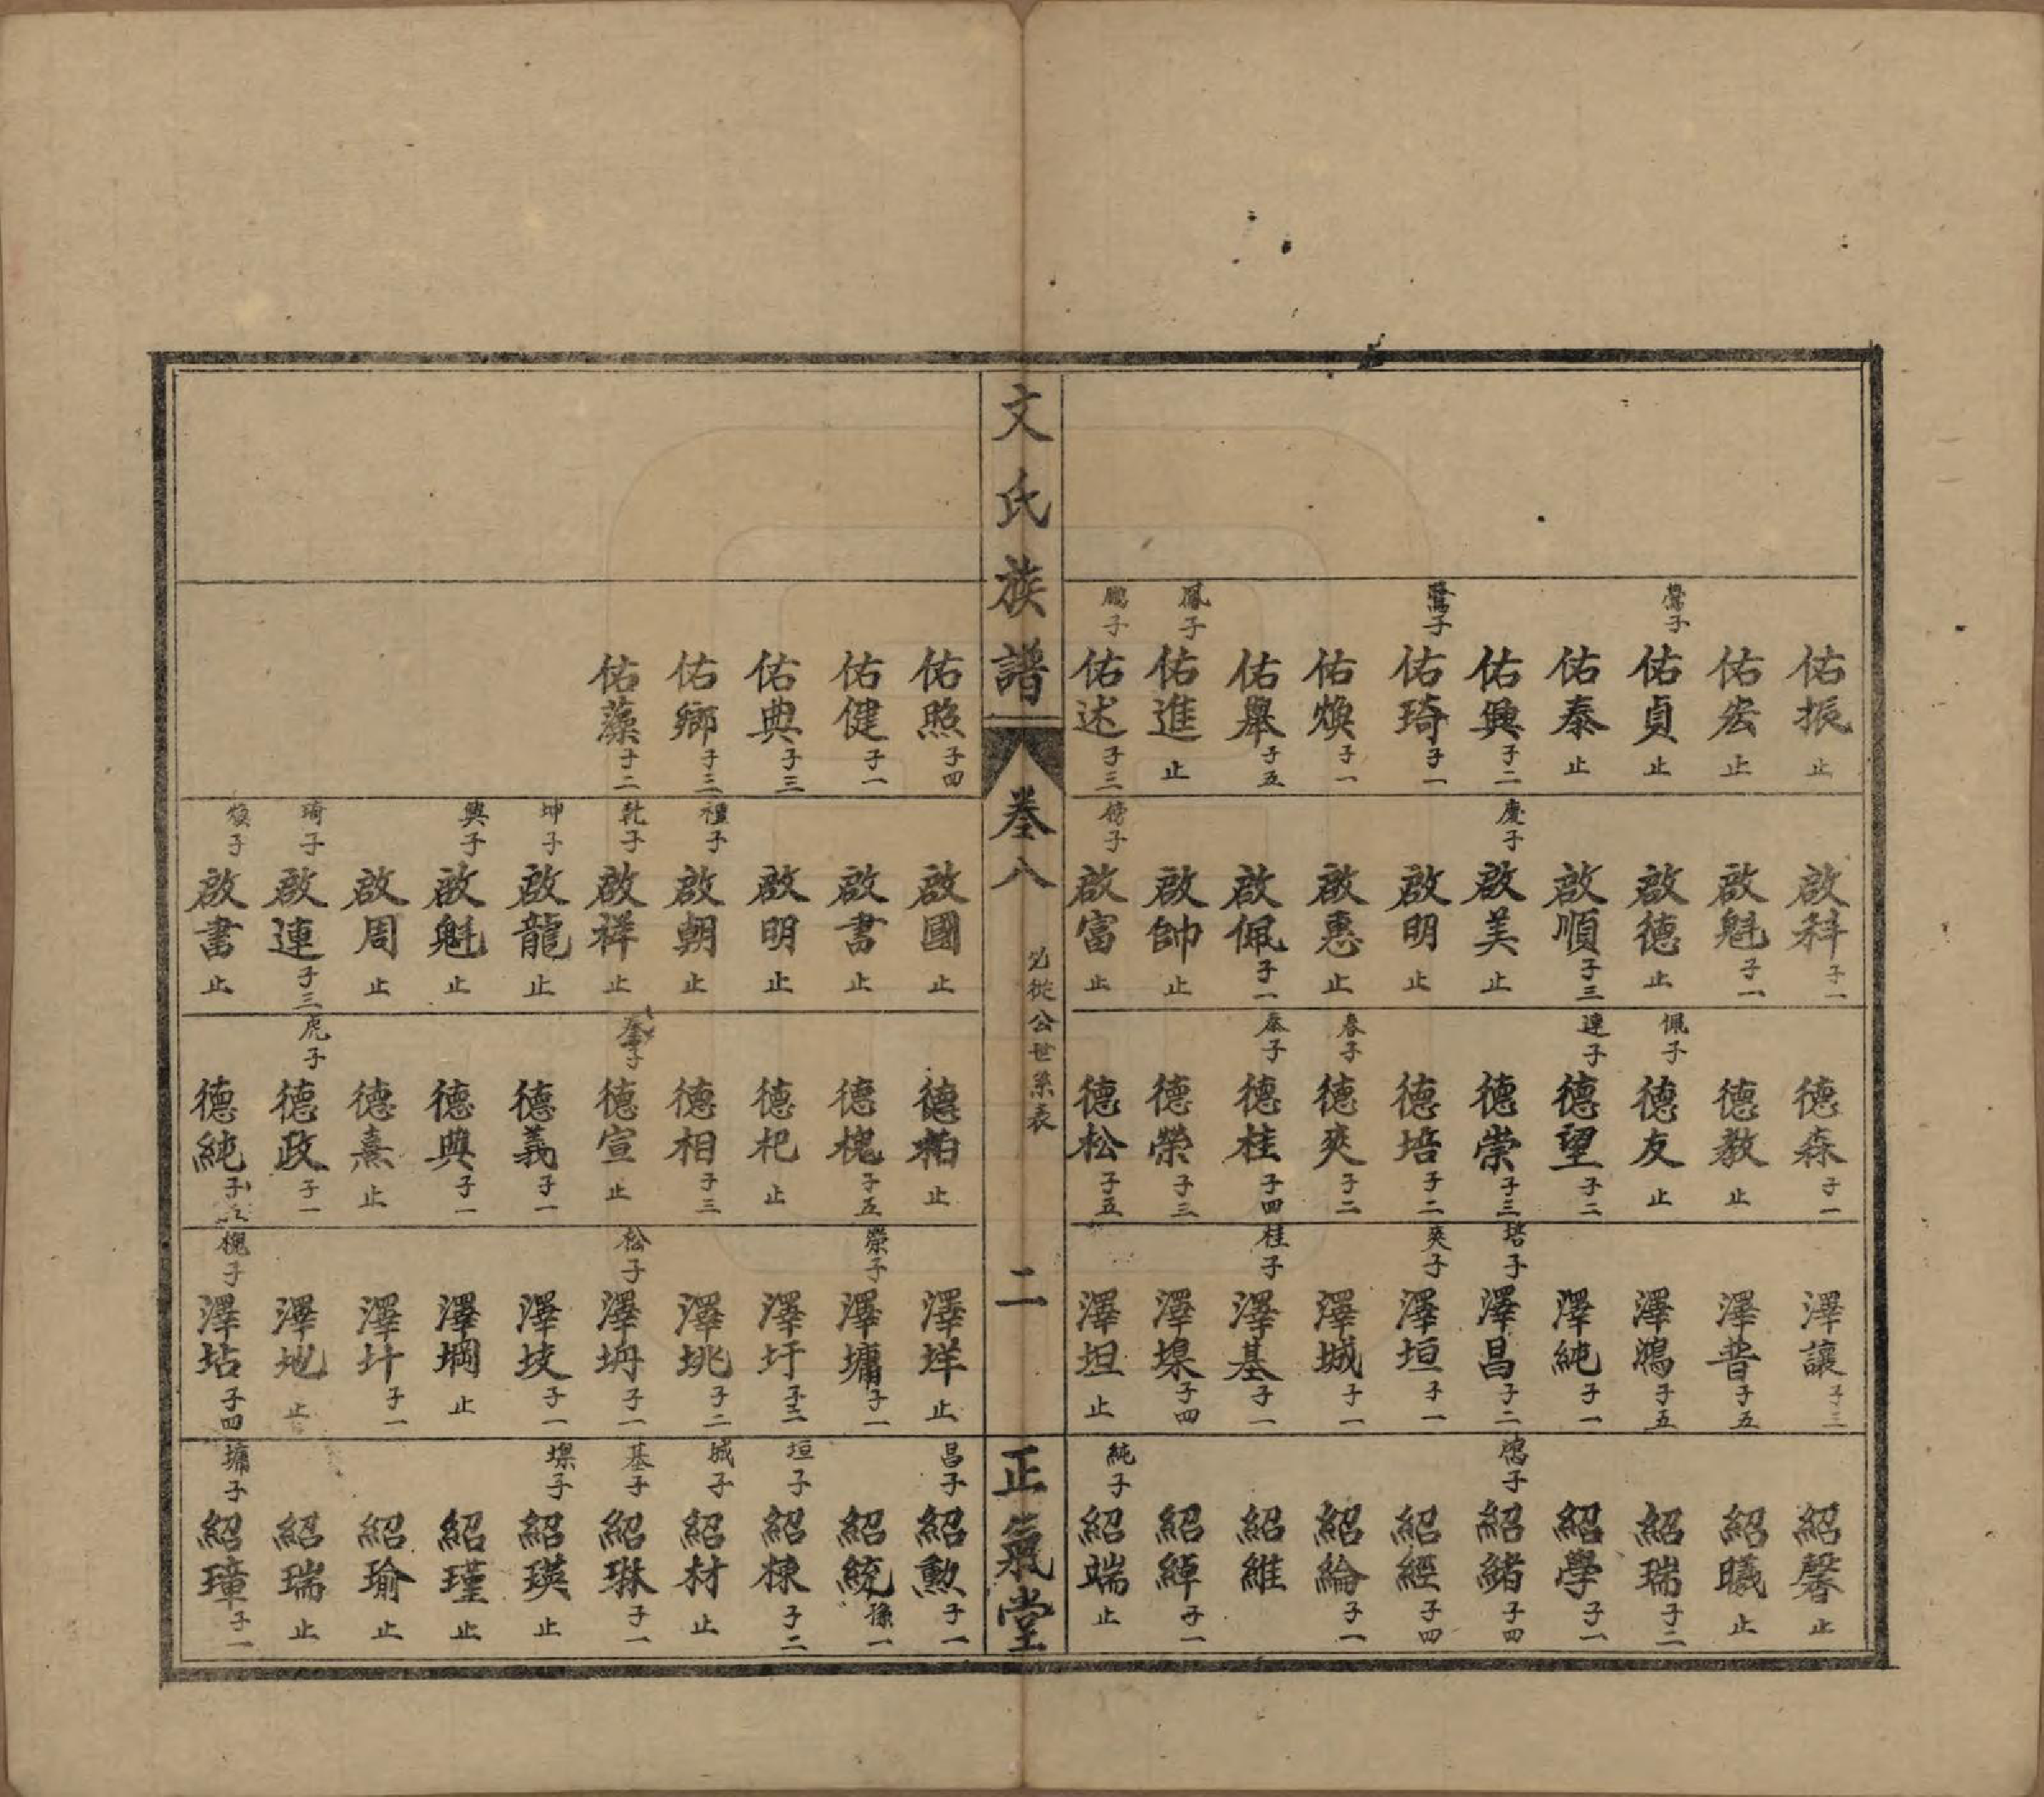 佑振止
佑宏止
鶯子 佑貞止
佑泰止
佑興子二
鷺子 佑琦子一
佑煥子一
佑舉子五
鳳子 佑進止
鵰子 佑述子三
啟科子一
啟魁子一
啟德止
啟順子三
慶子 啟美止
啟明止
啟惠止
啟佩子一
啟帥止
啟富止
德森子一
德教止
佩子 德友止
連子 德望子二
德崇子三
德培子二
春子 德爽子二
泰子 德桂子四
德榮子三
德松子五
澤讓子三
澤普子五
澤鴻子五
澤純子一
培子 澤昌子二
爽子 澤垣子一
澤城子一
桂子 澤基子一
澤堞子四
澤坦止
紹馨止
紹曦止
紹瑞子二
紹學子一
鴻子 紹緒子四
紹經子四
紹綸子一
紹維
紹綽子一
純子 紹端止
文氏族譜
卷八
必從公世系表
二
正氣堂
佑照子四
佑健子一
佑典子三
佑鄉子三
佑藻子二
啟國止
啟書止
啟明止
禮子 啟朝止
乾子 啟祥止
坤子 啟龍止
興子 啟魁止
啟周止
琦子 啟連子三
煥子 啟書止
德柏止
德槐子五
德杞止
德相子三
德宣止
德義子一
德典子一
德熹止
虎子 德政子一
德純
澤垟止
榮子 澤墉子一
澤圩子二
澤垗子二
松子 澤坍子一
澤坡子一
澤堈止
澤圤子一
澤地止
槐子 澤坫子四
昌子 紹勳子一
紹統孫一
垣子 紹棟子二
城子 紹材止
基子 紹琳子一
堞子 紹瑛止
紹瑾止
紹瑜止
紹瑞止
墉子 紹璋子一